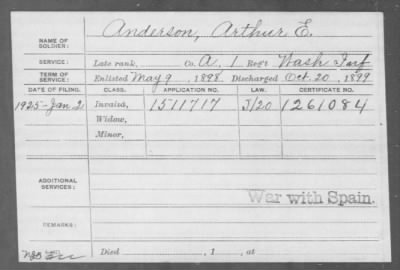 Anderson, Arthur E.
NAME OF
SOLDIER:
SERVICE:
Late rank, Co. A, 1 Reg't Wash Inf
TERM OF
SERVICE:
Enlisted May 9, 1898. Discharged Oct. 20, 1899
DATE OF FILING. CLASS. APPLICATION NO. LAW. CERTIFICATE NO.
1925-Jan 2 Invalid, 1511717 J/20 1261084
Widow,
Minor,
ADDITIONAL
SERVICES:
War with Spain.
REMARKS:
Died , 1 , at